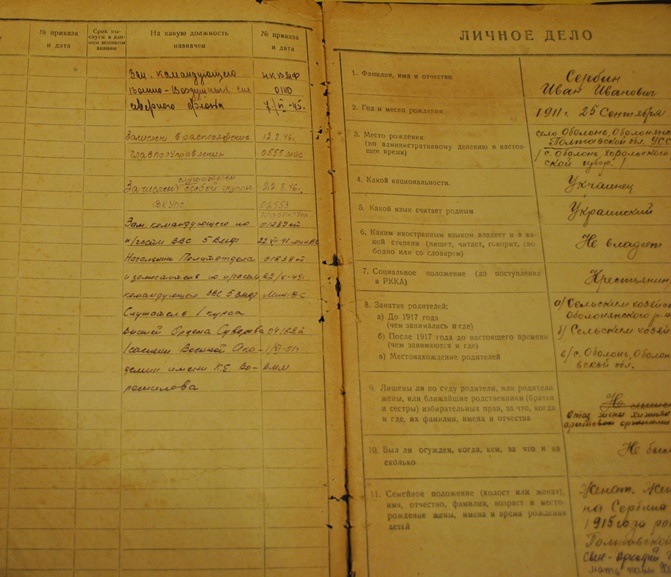 № приказа
и дата
Срок вы-
слуги в дан-
ном воинском
звании
На какую должность
назначен
№ приказа
и дата
Зам. командующего
Военно-Воздушных сил
северного флота
НКВМФ
7/VI-45г.
Зачислен в распоряжение
Главполитуправления
12.2.46г.
0555
слушателем
Зачислен особой группы
22.2.46г.
Зам командующего по
п/части ВВС 5 ВМФ
Начальник Политотдела
и заместитель по п/части
командующего ВВС 5 ВМФ
Слушатель 1 курса
высшей Ордена Суворова
1 степени Военной Ака-
демии имени К.Е. Во-
рошилова
ВММ
ЛИЧНОЕ ДЕЛО
1. Фамилия, имя и отчество
Сербин
Иван Иванович
2. Год и месяц рождения
1911 г. 25 Сентября
3. Место рождения
(по административному делению в настоя-
щее время)
село Оболонь, Оболонянского
Полтавской обл. УССР
(с. Оболонь, Хорольского
4. Какой национальности.
Украинец
5. Какой язык считает родным
Украинский
6. Каким иностранным языком владеет и в ка-
кой степени (пишет, читает, говорит, сво-
бодно или со словарем)
Не владеет
7. Социальное положение (до поступления
в РККА)
Крестьянин
8. Занятие родителей:
а) До 1917 года
(чем занимались и где)
б) После 1917 года до настоящего времени
(чем занимаются и где)
в) Местонахождение родителей
а) Сельским хозяйст
Оболонянского р-на
б) Сельским хозяй
в) с. Оболонь, Оболон
вской обл.
9. Лишены ли по суду родители, или родители
жены, или ближайшие родственники (братья
и сестры) избирательных прав, за что, когда
и где, их фамилии, имена и отчества
Не лишены
10. Был ли осужден, когда, кем, за что и на
сколько
Не был
11. Семейное положение (холост или женат),
имя, отчество, фамилия, возраст и место-
рождения жены, имена и время рождения
детей
Женат. Жен
на Сербина
1915 года ро
Полтавской
сын - Аркадий
мать